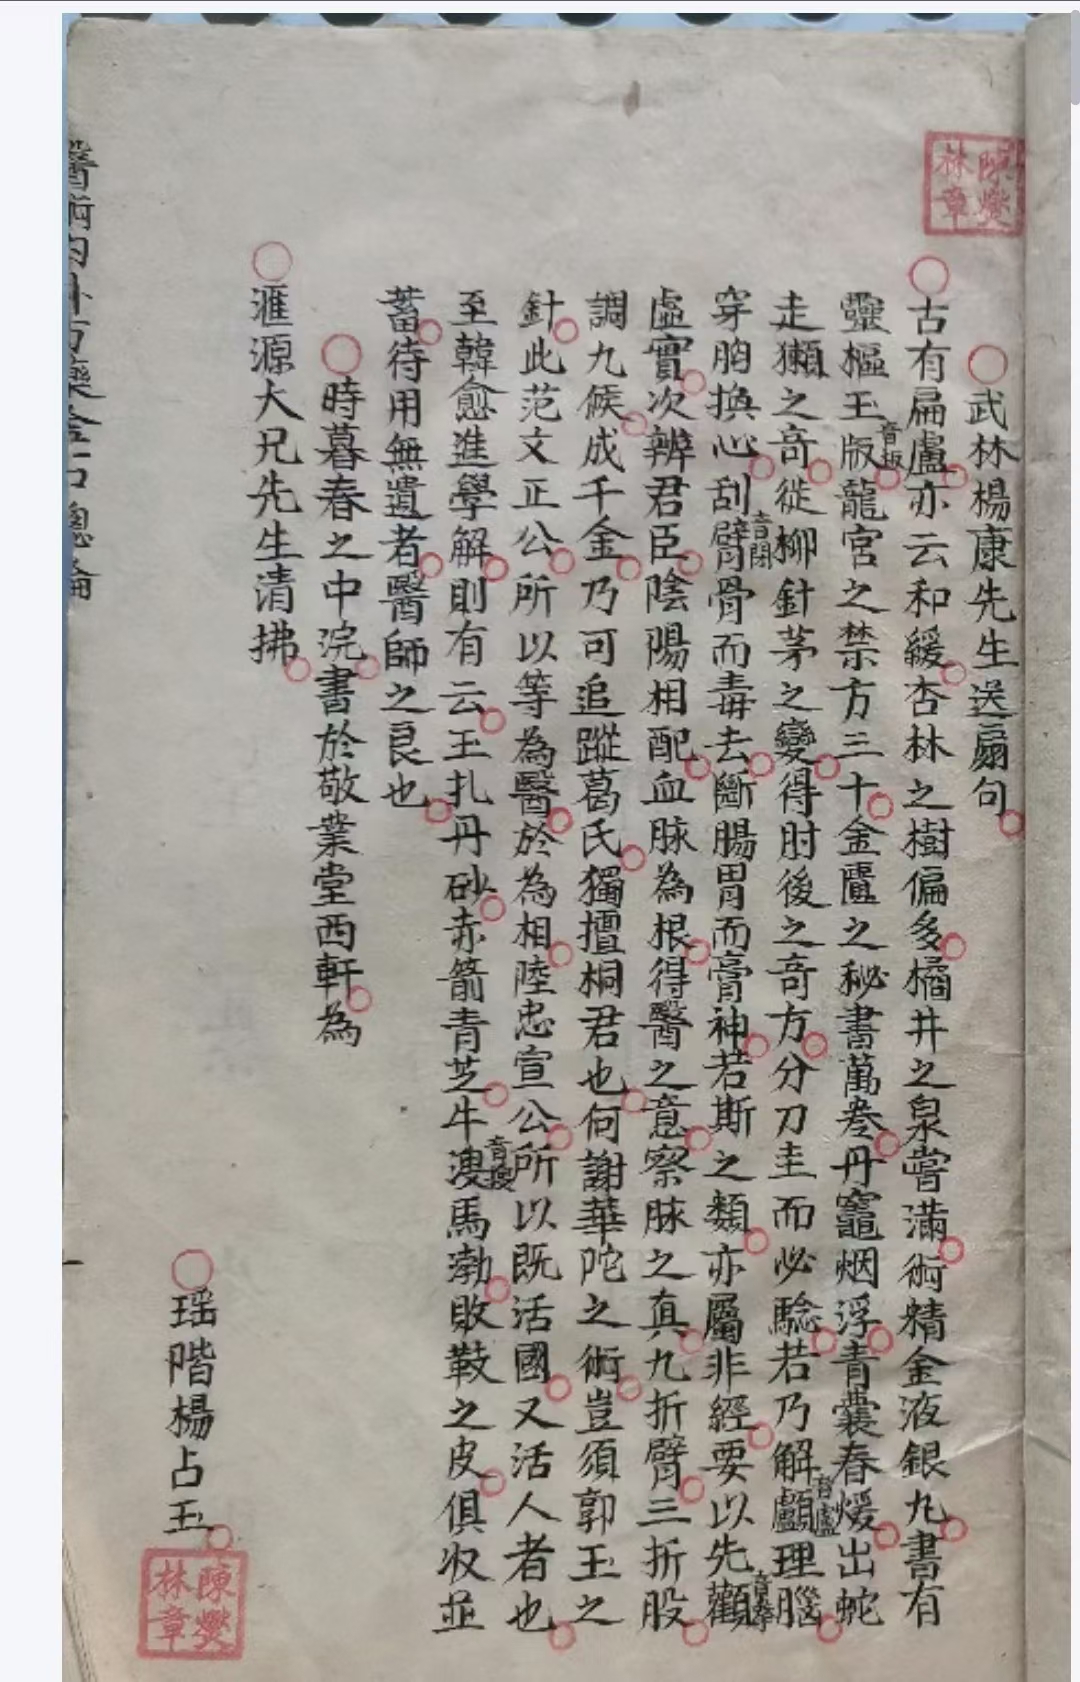 武林楊康先生送扇句
古有扁盧亦云和緩杏林之樹偏多橘井之泉嘗滿術精金液銀丸書有
靈樞玉版音板龍宮之禁方三十金匱之秘書萬卷丹竈烟浮青囊春煖出蛇
走獺之奇從柳針茅之變得肘後之奇方分刀圭而必騐若乃解顱音盧理腦
穿胸換心刮臂骨而毒去斷腸胃而膏神若斯之類亦屬非經要以先觀
虛實次辨君臣陰陽相配血脉為根得醫之意察脉之真九折臂三折股
調九候成千金乃可追蹤葛氏獨擅桐君也何謝華陀之術豈須郭玉之
針此范文正公所以等為醫於為相陸忠宣公所以既活國又活人者也
至韓愈進學解則有云玉扎丹砂赤箭青芝牛溲馬渤敗鼓之皮俱收並
蓄待用無遺者醫師之良也
時暮春之中浣書於敬業堂西軒為
滙源大兄先生清拂
瑶階楊占玉
陳爕林章
陳爕林章